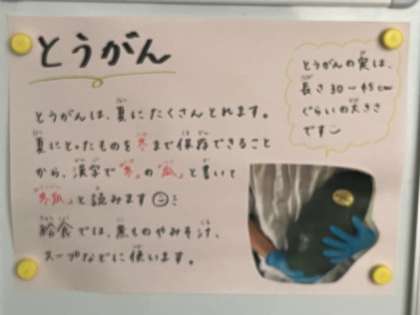 とうがん
とうがんは、夏にたくさんとれます。
夏にとったものを冬まで保存できること
から、漢字で「冬」の「瓜」と書いて
「冬瓜」と読みます
給食では、煮ものやみそ汁、
スープなどに使います。
とうがんの実は、
長さ30〜45cm
ぐらいの大きさ
です